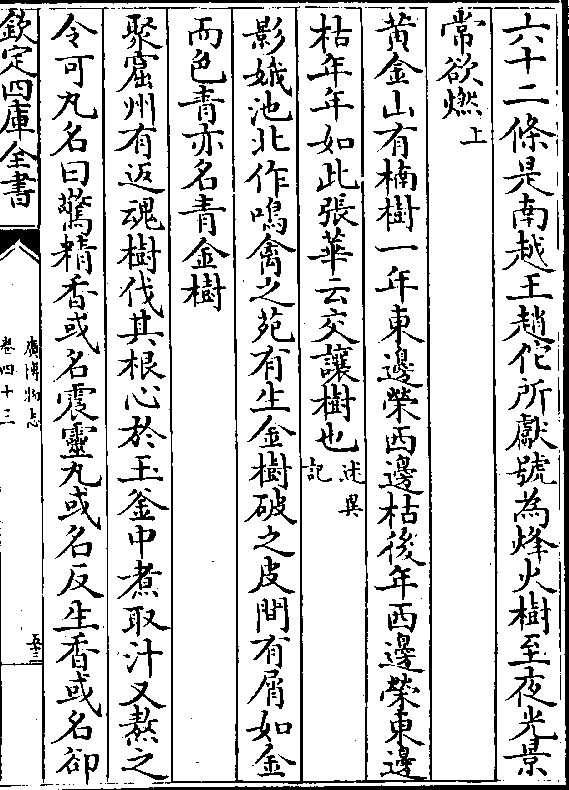 六十二條是南越王趙佗所獻號為烽火樹至夜光景
常欲燃上
黃金山有楠樹一年東邊榮西邊枯後年西邊榮東邊
枯年年如此張華云交讓樹也述異記
影娥池北作鳴禽之苑有生金樹破之皮間有屑如金
而色青亦名青金樹
聚窟州有返魂樹伐其根心於玉釜中煮取汁又熬之
令可丸名曰驚精香或名震靈丸或名反生香或名卻
欽定四庫全書
廣博物志
卷四十三
五十三